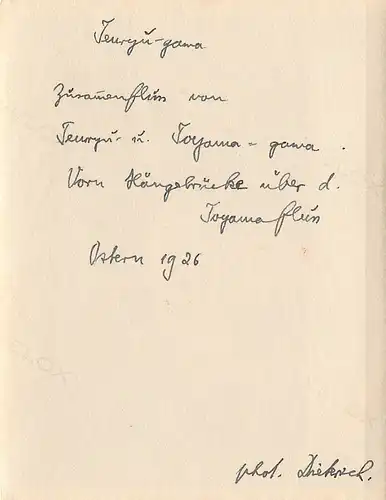 Tenryū-gawa
Zusammenfluss von
Tenryu- u. Toyama-gawa.
Vorn Hängebrücke über d.
Toyamafluss
Ostern 1926
phot.